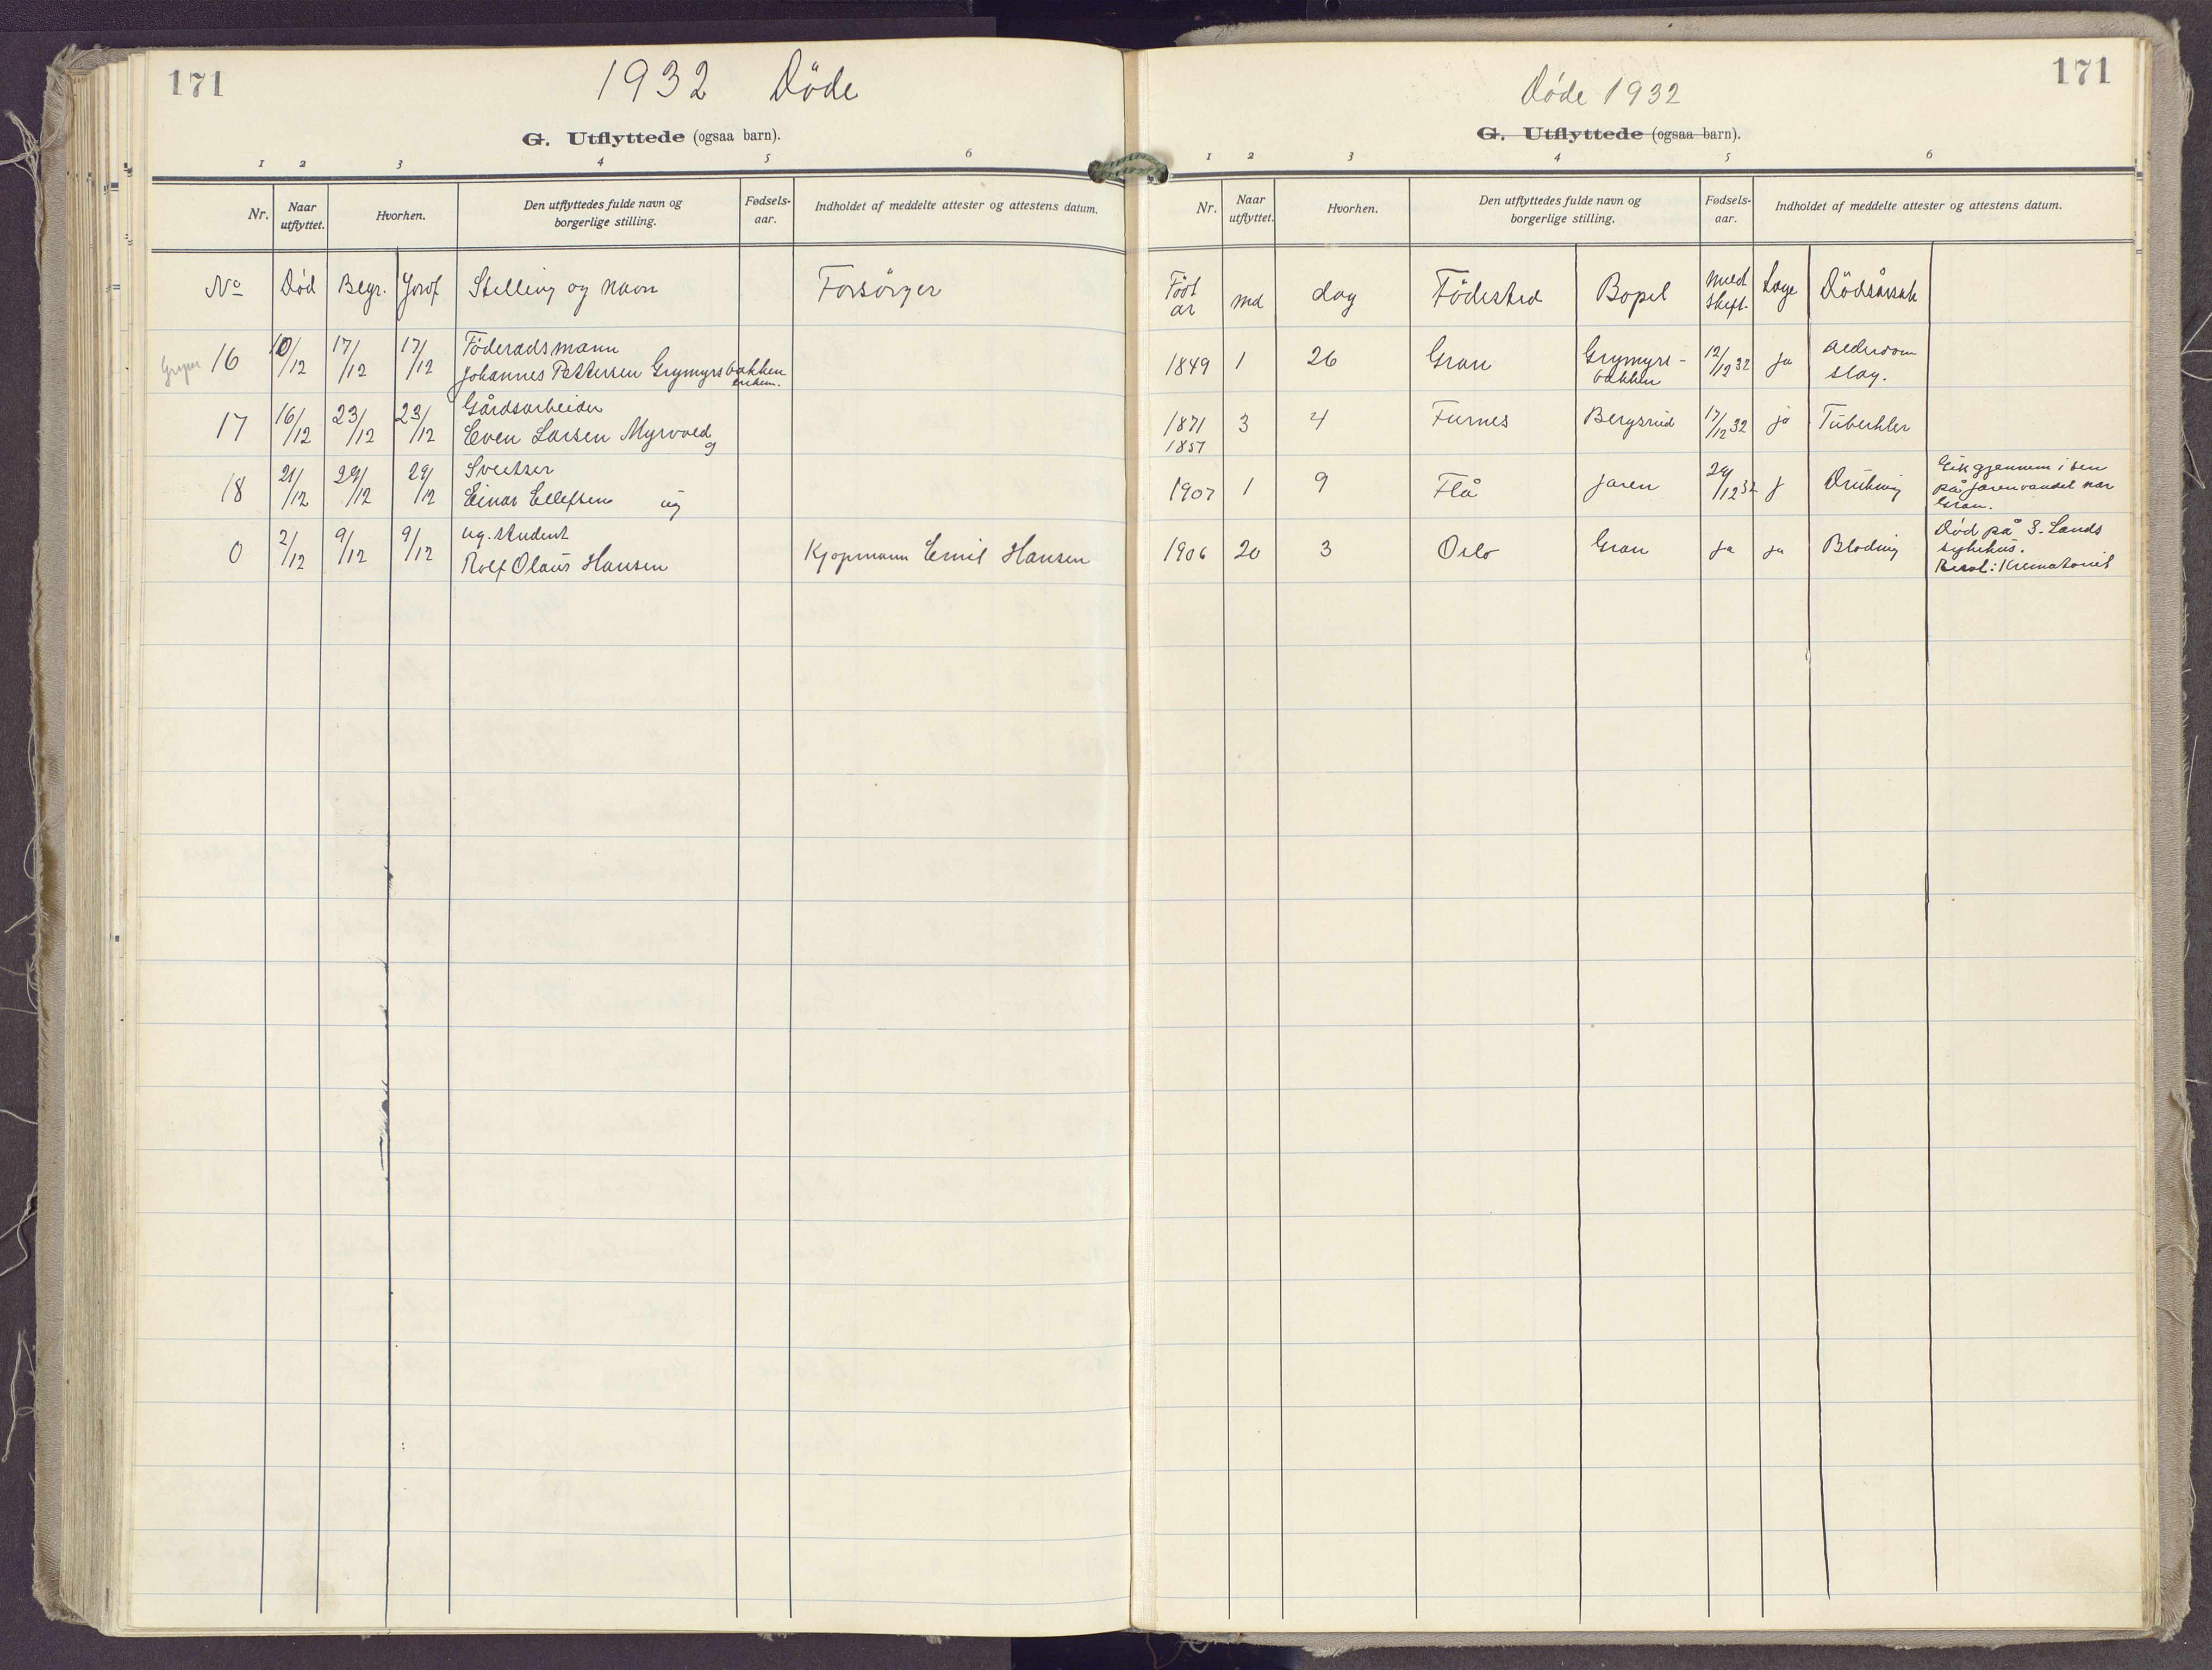 171
1932 Döde
G. Utflyttede (ogsaa barn).
1 2 3 4 5 6
Nr.
Naar utflyttet.
Hvorhen.
Den utflyttedes fulde navn og borgerlige stilling.
Fødsels-aar.
Indholdet af meddelte attester og attestens datum.
No Död Begr. Jordf Stilling og navn Forsörger
16 10/12 17/12 17/12 Föderadsmann
Johannes Pettersen Grymyrsbakken
enkem.
17 16/12 23/12 23/12 Gårdsarbeider
Even Larsen Myrvold
g
18 21/12 29/12 29/12 Sveitser
Einar Ellefsen ug
0 2/12 9/12 9/12 ug. student
Rolf Olaus Hansen Kjøpmann Emil Hansen
171
Döde 1932
G. Utflyttede (ogsaa barn).
1 2 3 4 5 6
Nr.
Naar utflyttet.
Hvorhen.
Den utflyttedes fulde navn og borgerlige stilling.
Fødsels-aar.
Indholdet af meddelte attester og attestens datum.
Födt år md dag Födested Bopel Meld. Skift. Læge Dödsårsak
1849 1 26 Gran Grymyrs-bakken 12/12 32 ja Alderdom slag.
1871 3 4 Furnes Bergsrud 17/12 32 ja Tuberkler
1857
1907 1 9 Flå Jaren 24/12 32 j Drukning Gik gjennem isen
på Jarenvandet nær
Gran.
1906 20 3 Oslo Gran ja ja Blodning Död på S. Lands
sykehus.
Besat: Krematoriet